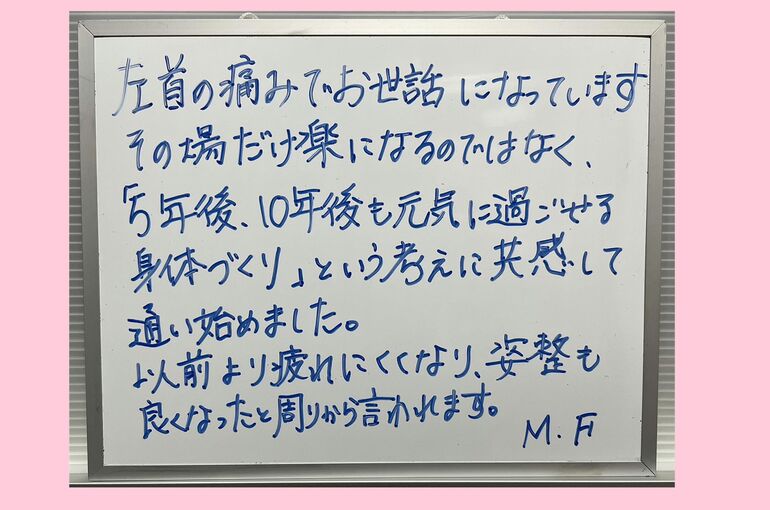 左首の痛みでお世話になっています
その場だけ楽になるのではなく、
「5年後、10年後も元気に過ごせる
身体づくり」という考えに共感して
通い始めました。
以前より疲れにくくなり、姿整も
良くなったと周りから言われます。
M.F